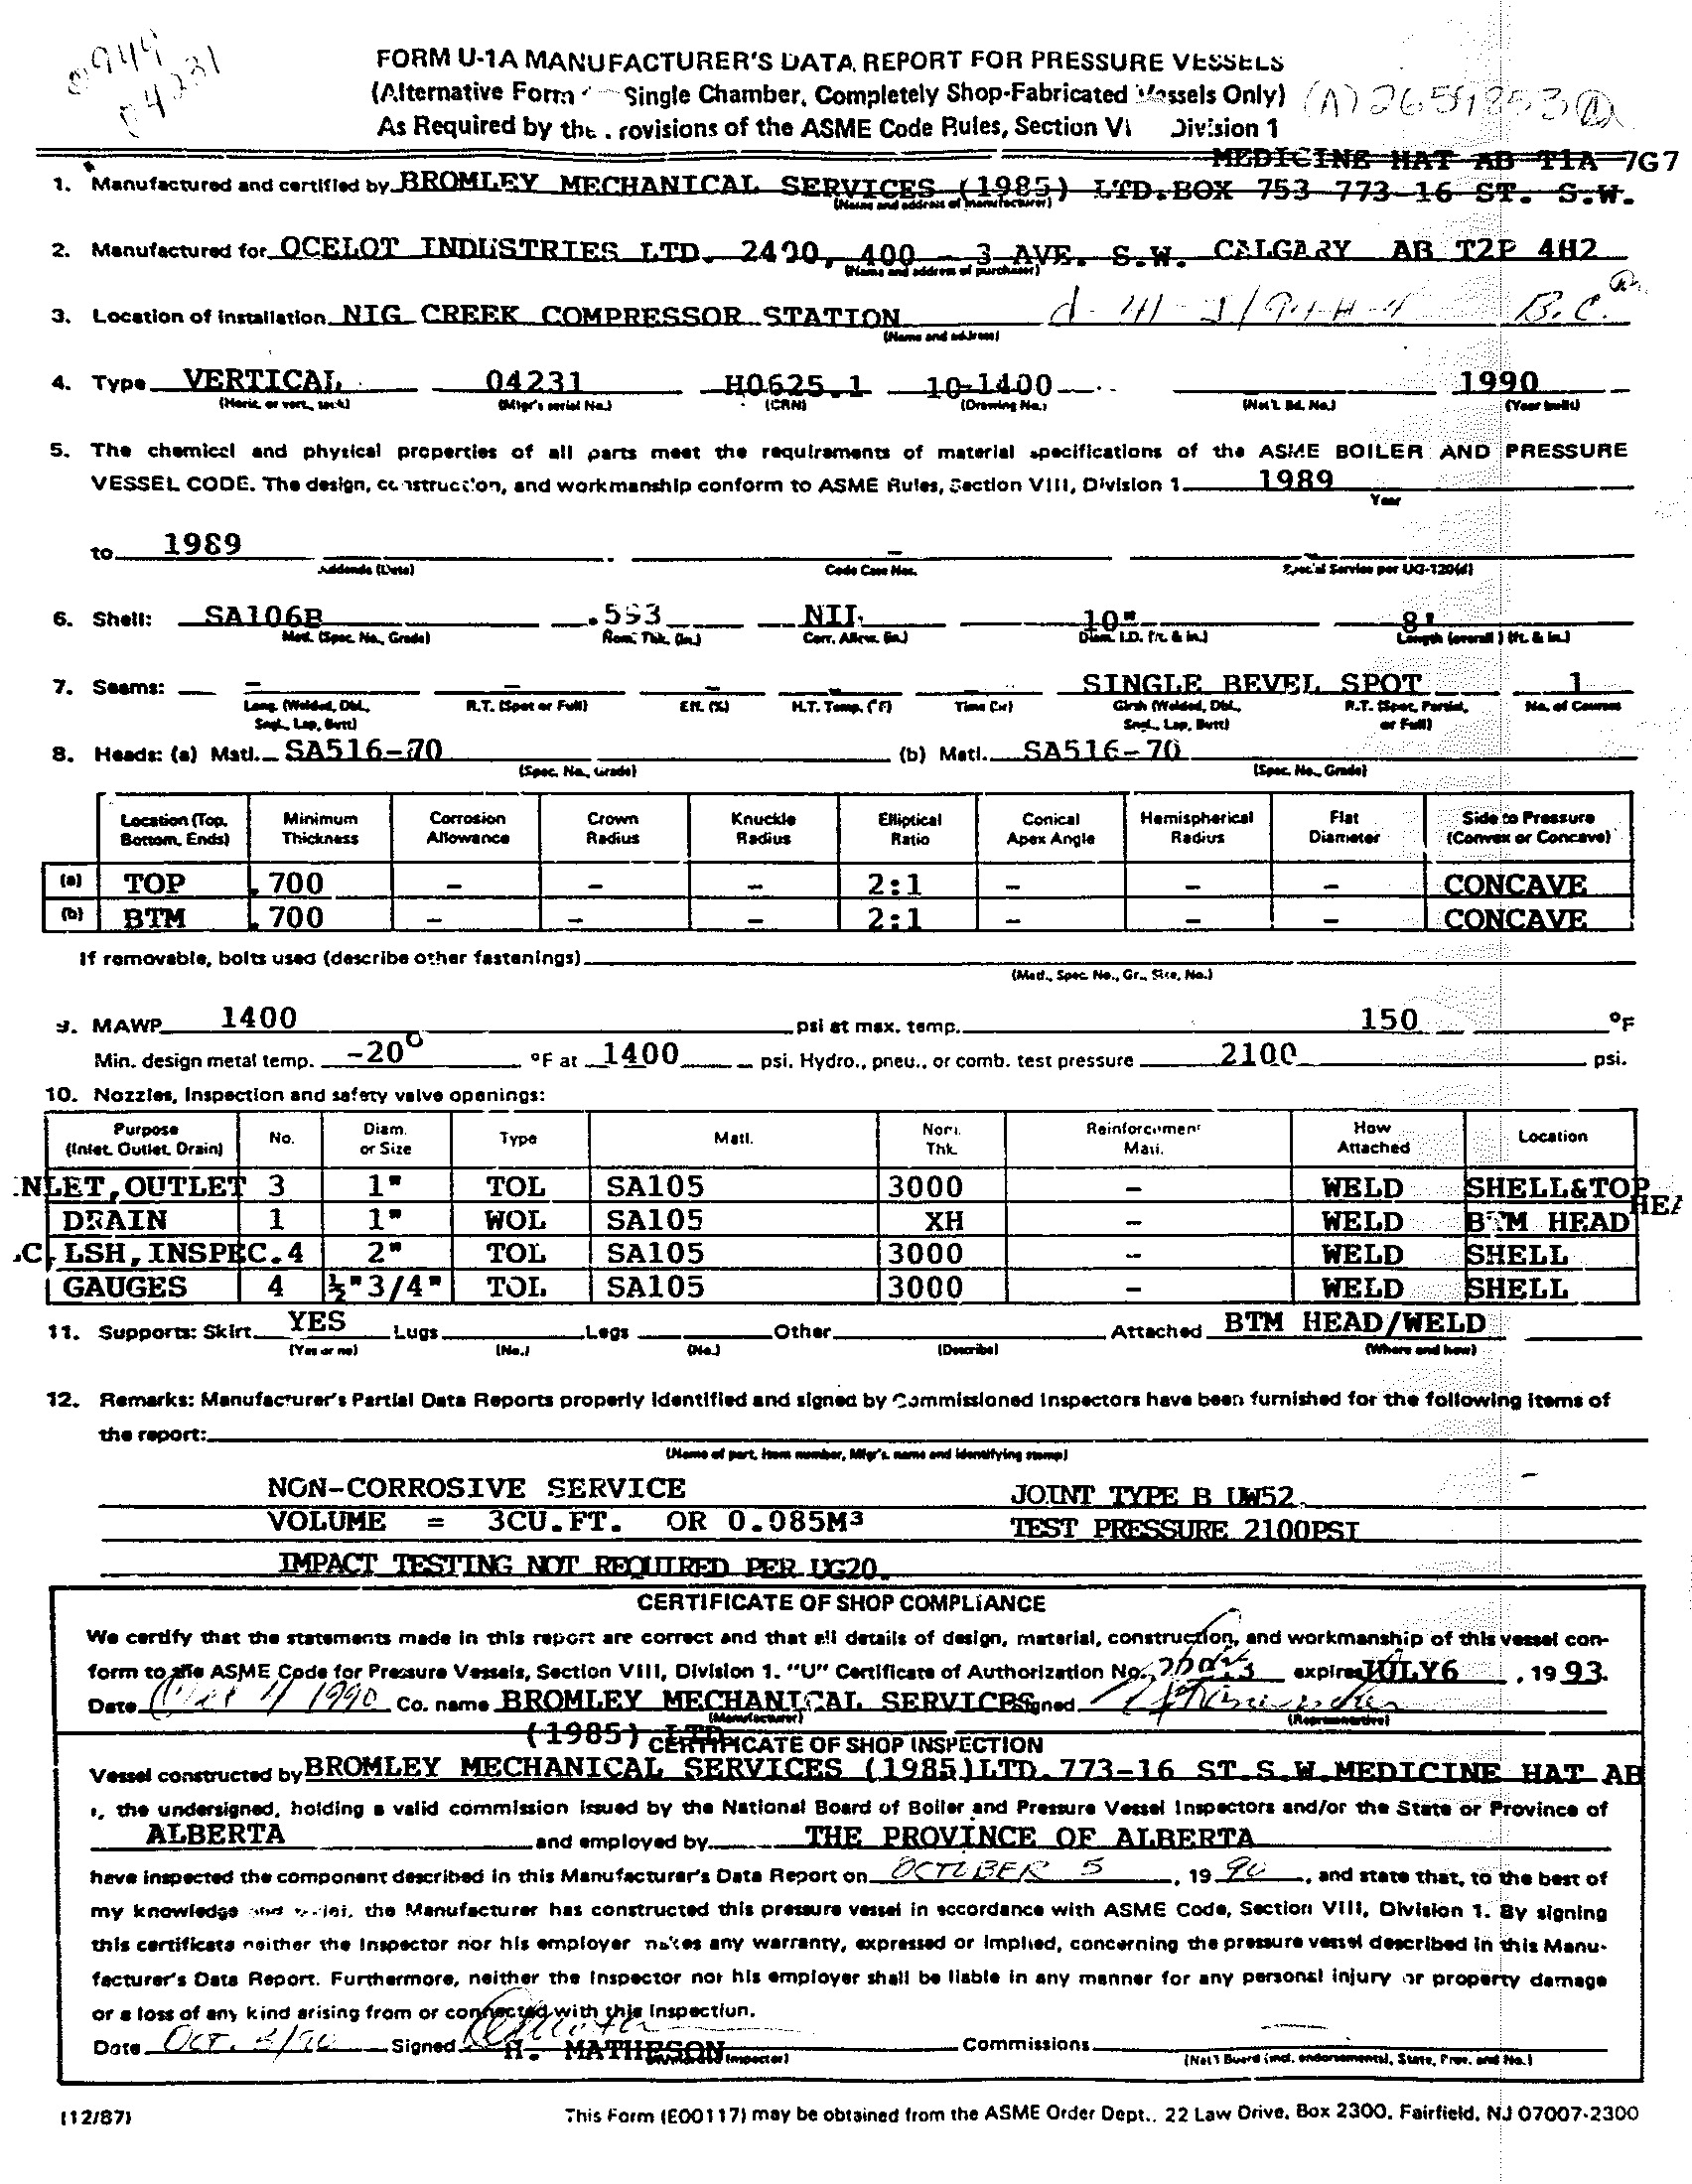 0949
04231
FORM U-1A MANUFACTURER'S DATA REPORT FOR PRESSURE VESSELS
(Alternative Form Single Chamber, Completely Shop-Fabricated Vessels Only) (A) 2651853
As Required by the Provisions of the ASME Code Rules, Section VI Division 1
MEDICINE HAT AB T1A 7G7
1. Manufactured and certified by BROMLEY MECHANICAL SERVICES (1985) LTD.BOX 753 773-16 ST. S.W.
(Name and address of manufacturer)
2. Manufactured for OCELOT INDUSTRIES LTD. 2400, 400 - 3 AVE. S.W. CALGARY AB T2P 4H2
(Name and address of purchaser)
3. Location of installation NIG CREEK COMPRESSOR STATION d-41-J/94-H-4 B.C.
(Name and address)
4. Type VERTICAL 04231 H0625.1 10-1400 1990
(Horiz. or vert., tank) (Mfgr's serial No.) (CRN) (Drawing No.) (Nat'l. Bd. No.) (Year built)
5. The chemical and physical properties of all parts meet the requirements of material specifications of the ASME BOILER AND PRESSURE
VESSEL CODE. The design, construction, and workmanship conform to ASME Rules, Section VIII, Division 1 1989
Year
to 1989 - -
Addenda (Date) Code Case Nos. Special Service per UG-120(d)
6. Shell: SA106B .593 NIL 10" 8'
Matl. (Spec. No., Grade) Nom. Thk. (in.) Corr. Allow. (in.) Diam. I.D. (ft. & in.) Length (overall) (ft. & in.)
7. Seams: - - - - - SINGLE BEVEL SPOT 1
Long. (Welded, Dbl., R.T. (Spot or Full) Eff. (%) H.T. Temp. (°F) Time (hr) Girth (Welded, Dbl., R.T. (Spot, Partial, No. of Courses
Sngl., Lap, Butt) Sngl., Lap, Butt) or Full)
8. Heads: (a) Matl. SA516-70 (b) Matl. SA516-70
(Spec. No., Grade) (Spec. No., Grade)
Location (Top, Minimum Corrosion Crown Knuckle Elliptical Conical Hemispherical Flat Side to Pressure
Bottom, Ends) Thickness Allowance Radius Radius Ratio Apex Angle Radius Diameter (Convex or Concave)
(a) TOP .700 - - - 2:1 - - - CONCAVE
(b) BTM .700 - - - 2:1 - - - CONCAVE
If removable, bolts used (describe other fastenings)
(Matl., Spec. No., Gr., Size, No.)
9. MAWP 1400 psi at max. temp. 150 °F
Min. design metal temp. -20° °F at 1400 psi. Hydro., pneu., or comb. test pressure 2100 psi.
10. Nozzles, inspection and safety valve openings:
Purpose No. Diam. Type Matl. Nom. Reinforcement How Location
(Inlet, Outlet, Drain) or Size Thk. Matl. Attached
INLET,OUTLET 3 1" TOL SA105 3000 - WELD SHELL&TOP HEA
DRAIN 1 1" WOL SA105 XH - WELD BTM HEAD
LC, LSH,INSPEC. 4 2" TOL SA105 3000 - WELD SHELL
GAUGES 4 ½"3/4" TOL SA105 3000 - WELD SHELL
11. Supports: Skirt YES Lugs Legs Other Attached BTM HEAD/WELD
(Yes or no) (No.) (No.) (Describe) (Where and how)
12. Remarks: Manufacturer's Partial Data Reports properly identified and signed by Commissioned Inspectors have been furnished for the following items of
the report:
(Name of part, item number, Mfgr's. name and identifying stamp)
NON-CORROSIVE SERVICE JOINT TYPE B UW52.
VOLUME = 3CU.FT. OR 0.085M³ TEST PRESSURE 2100PSI
IMPACT TESTING NOT REQUIRED PER UG20.
CERTIFICATE OF SHOP COMPLIANCE
We certify that the statements made in this report are correct and that all details of design, material, construction, and workmanship of this vessel con-
form to the ASME Code for Pressure Vessels, Section VIII, Division 1. "U" Certificate of Authorization No. expires JULY6 , 19 93.
Date 1990 Co. name BROMLEY MECHANICAL SERVICES Signed
(Manufacturer) (Representative)
(1985) LTD
CERTIFICATE OF SHOP INSPECTION
Vessel constructed by BROMLEY MECHANICAL SERVICES (1985)LTD.773-16 ST.S.W.MEDICINE HAT AB
I, the undersigned, holding a valid commission issued by the National Board of Boiler and Pressure Vessel Inspectors and/or the State or Province of
ALBERTA and employed by THE PROVINCE OF ALBERTA
have inspected the component described in this Manufacturer's Data Report on OCTOBER 5 , 19 90 , and state that, to the best of
my knowledge and belief, the Manufacturer has constructed this pressure vessel in accordance with ASME Code, Section VIII, Division 1. By signing
this certificate neither the Inspector nor his employer makes any warranty, expressed or implied, concerning the pressure vessel described in this Manu-
facturer's Data Report. Furthermore, neither the Inspector nor his employer shall be liable in any manner for any personal injury or property damage
or a loss of any kind arising from or connected with this inspection.
Date Oct. /90 Signed H. MATHESON Commissions
(Authorized Inspector) (Nat'l Board (incl. endorsements), State, Prov. and No.)
(12/87) This Form (E00117) may be obtained from the ASME Order Dept., 22 Law Drive, Box 2300, Fairfield, NJ 07007-2300